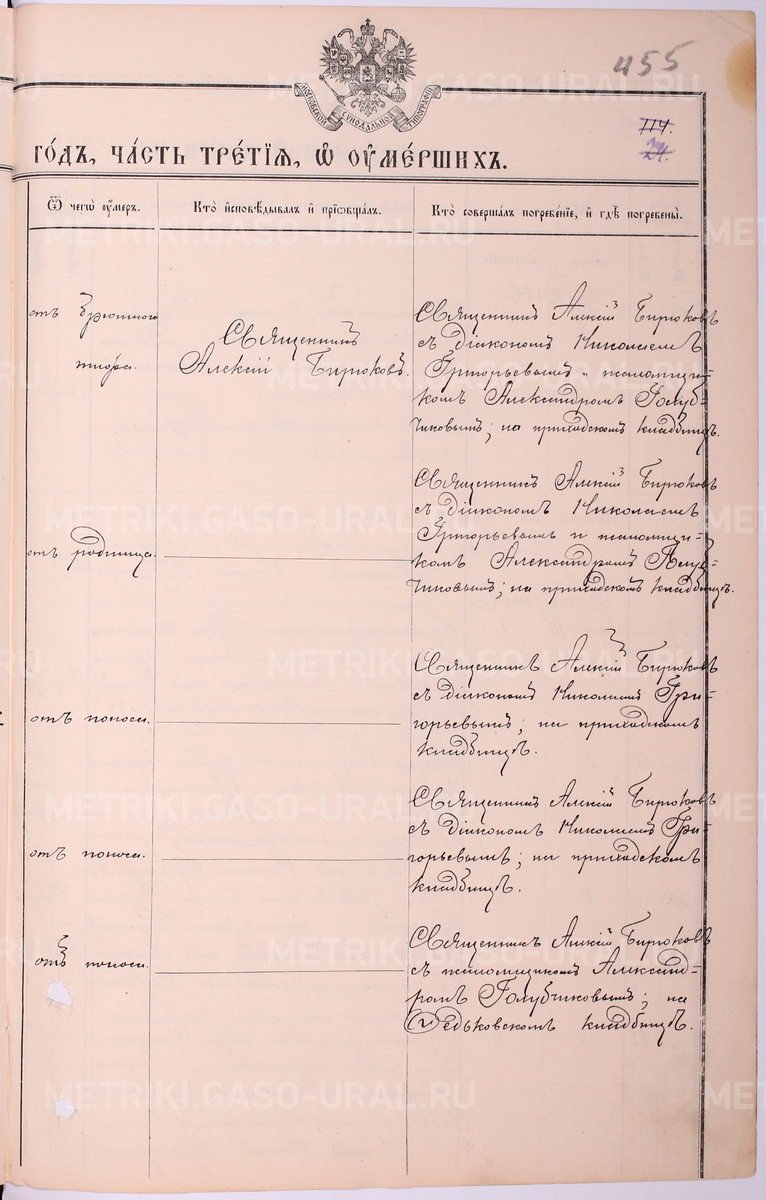 455
МОСКОВСКОЙ СѴНОДАЛЬНОЙ ТИПОГРАФІИ
114.
24.
го́дъ, ча́сть тре́тїѧ, ѡ҆ оу҆ме́ршихъ.
Ѿ чегѡ̀ оу҆́меръ.
Кто̀ и҆сповѣ́дывалъ и҆ прїѡбща́лъ.
Кто̀ соверша́лъ погребе́нїе, и҆ гдѣ̀ погребены̀.
отъ брюшного
тифа.
Священникъ
Алексій Бирюковъ.
Священникъ Алексій Бирюковъ
съ діакономъ Николаемъ
Григорьевымъ и псаломщи-
комъ Александромъ Голуб-
чиковымъ; на приходскомъ кладбищѣ.
отъ родимца.
Священникъ Алексій Бирюковъ
съ діакономъ Николаемъ
Григорьевымъ и псаломщи-
комъ Александромъ Голуб-
чиковымъ; на приходскомъ кладбищѣ.
отъ поноса.
Священникъ Алексій Бирюковъ
съ діакономъ Николаемъ Гри-
горьевымъ; на приходскомъ
кладбищѣ.
отъ поноса.
Священникъ Алексій Бирюковъ
съ діакономъ Николаемъ Гри-
горьевымъ; на приходскомъ
кладбищѣ.
отъ поноса.
Священникъ Алексій Бирюковъ
съ псаломщикомъ Александ-
ромъ Голубчиковымъ; на
кладбищѣ.
METRIKI.GASO-URAL.RU